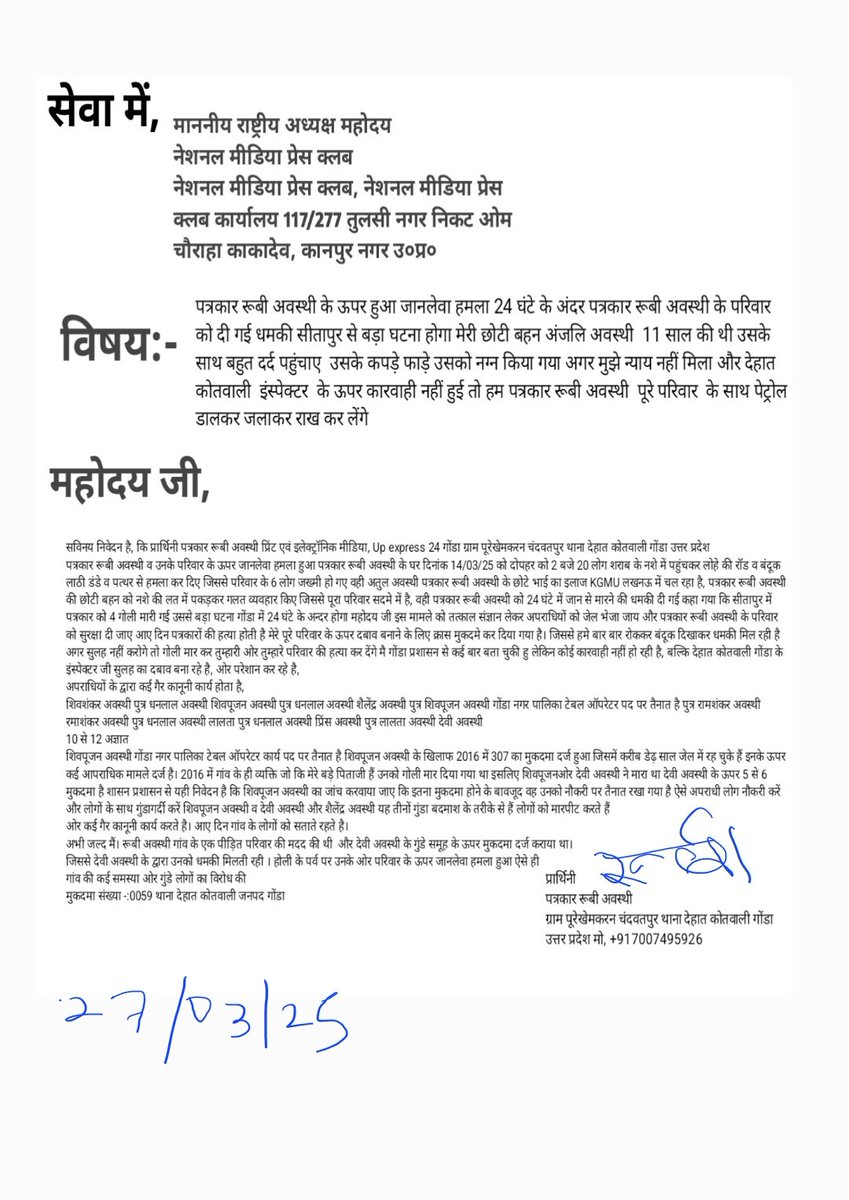 सेवा में,
माननीय राष्ट्रीय अध्यक्ष महोदय
नेशनल मीडिया प्रेस क्लब
नेशनल मीडिया प्रेस क्लब, नेशनल मीडिया प्रेस
क्लब कार्यालय 117/277 तुलसी नगर निकट ओम
चौराहा काकादेव, कानपुर नगर उ०प्र०
विषय:-
पत्रकार रूबी अवस्थी के ऊपर हुआ जानलेवा हमला 24 घंटे के अंदर पत्रकार रूबी अवस्थी के परिवार
को दी गई धमकी सीतापुर से बड़ा घटना होगा मेरी छोटी बहन अंजलि अवस्थी 11 साल की थी उसके
साथ बहुत दर्द पहुंचाए उसके कपड़े फाड़े उसको नग्न किया गया अगर मुझे न्याय नहीं मिला और देहात
कोतवाली इंस्पेक्टर के ऊपर कारवाही नहीं हुई तो हम पत्रकार रूबी अवस्थी पूरे परिवार के साथ पेट्रोल
डालकर जलाकर राख कर लेंगे
महोदय जी,
सविनय निवेदन है, कि प्रार्थिनी पत्रकार रूबी अवस्थी प्रिंट एवं इलेक्ट्रॉनिक मीडिया, Up express 24 गोंडा ग्राम पूरेखेमकरन चंदवतपुर थाना देहात कोतवाली गोंडा उत्तर प्रदेश
पत्रकार रूबी अवस्थी व उनके परिवार के ऊपर जानलेवा हमला हुआ पत्रकार रूबी अवस्थी के घर दिनांक 14/03/25 को दोपहर को 2 बजे 20 लोग शराब के नशे में पहुंचकर लोहे की रॉड व बंदूक
लाठी डंडे व पत्थर से हमला कर दिए जिससे परिवार के 6 लोग जख्मी हो गए वही अतुल अवस्थी पत्रकार रूबी अवस्थी के छोटे भाई का इलाज KGMU लखनऊ में चल रहा है, पत्रकार रूबी अवस्थी
की छोटी बहन को नशे की लत में पकड़कर गलत व्यवहार किए जिससे पूरा परिवार सदमे में है, वही पत्रकार रूबी अवस्थी को 24 घंटे में जान से मारने की धमकी दी गई कहा गया कि सीतापुर में
पत्रकार को 4 गोली मारी गई उससे बड़ा घटना गोंडा में 24 घंटे के अन्दर होगा महोदय जी इस मामले को तत्काल संज्ञान लेकर अपराधियों को जेल भेजा जाय और पत्रकार रूबी अवस्थी के परिवार
को सुरक्षा दी जाए आए दिन पत्रकारों की हत्या होती है मेरे पूरे परिवार के ऊपर दबाव बनाने के लिए क्रास मुकदमे कर दिया गया है। जिससे हमे बार बार रोककर बंदूक दिखाकर धमकी मिल रही है
अगर सुलह नहीं करोगे तो गोली मार कर तुम्हारी ओर तुम्हारे परिवार की हत्या कर देंगे मै गोंडा प्रशासन से कई बार बता चुकी हु लेकिन कोई कारवाही नहीं हो रही है, बल्कि देहात कोतवाली गोंडा के
इंस्पेक्टर जी सुलह का दबाव बना रहे है, ओर परेशान कर रहे है,
अपराधियों के द्वारा कई गैर कानूनी कार्य होता है,
शिवशंकर अवस्थी पुत्र धनलाल अवस्थी शिवपूजन अवस्थी पुत्र धनलाल अवस्थी शैलेंद्र अवस्थी पुत्र शिवपूजन अवस्थी गोंडा नगर पालिका टेबल ऑपरेटर पद पर तैनात है पुत्र रामशंकर अवस्थी
रमाशंकर अवस्थी पुत्र धनलाल अवस्थी लालता पुत्र धनलाल अवस्थी प्रिंस अवस्थी पुत्र लालता अवस्थी देवी अवस्थी
10 से 12 अज्ञात
शिवपूजन अवस्थी गोंडा नगर पालिका टेबल ऑपरेटर कार्य पद पर तैनात है शिवपूजन अवस्थी के खिलाफ 2016 में 307 का मुकदमा दर्ज हुआ जिसमें करीब डेढ़ साल जेल में रह चुके हैं इनके ऊपर
कई आपराधिक मामले दर्ज है। 2016 में गांव के ही व्यक्ति जो कि मेरे बड़े पिताजी हैं उनको गोली मार दिया गया था इसलिए शिवपूजनओर देवी अवस्थी ने मारा था देवी अवस्थी के ऊपर 5 से 6
मुकदमा है शासन प्रशासन से यही निवेदन है कि शिवपूजन अवस्थी का जांच करवाया जाए कि इतना मुकदमा होने के बावजूद वह उनको नौकरी पर तैनात रखा गया है ऐसे अपराधी लोग नौकरी करें
और लोगों के साथ गुंडागर्दी करें शिवपूजन अवस्थी व देवी अवस्थी और शैलेंद्र अवस्थी यह तीनों गुंडा बदमाश के तरीके से हैं लोगों को मारपीट करते हैं
ओर कई गैर कानूनी कार्य करते है। आए दिन गांव के लोगों को सताते रहते है।
अभी जल्द मैं। रूबी अवस्थी गांव के एक पीड़ित परिवार की मदद की थी और देवी अवस्थी के गुंडे समूह के ऊपर मुकदमा दर्ज कराया था।
जिससे देवी अवस्थी के द्वारा उनको धमकी मिलती रही । होली के पर्व पर उनके ओर परिवार के ऊपर जानलेवा हमला हुआ ऐसे ही
गांव की कई समस्या ओर गुंडे लोगों का विरोध की
मुकदमा संख्या -:0059 थाना देहात कोतवाली जनपद गोंडा
प्रार्थिनी
पत्रकार रूबी अवस्थी
ग्राम पूरेखेमकरन चंदवतपुर थाना देहात कोतवाली गोंडा
उत्तर प्रदेश मो, +917007495926
27/03/25